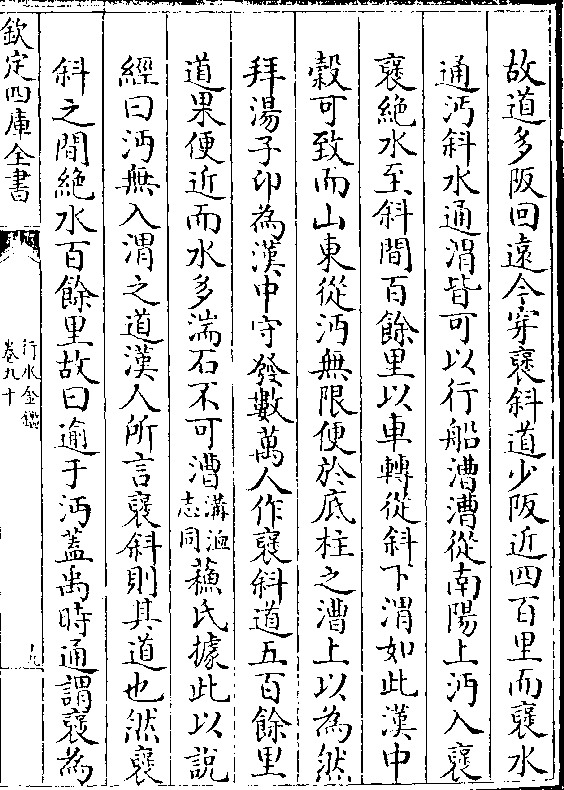 故道多阪回遠今穿襃斜道少阪近四百里而襃水
通沔斜水通渭皆可以行船漕漕從南陽上沔入襃
襃絶水至斜間百餘里以車轉從斜下渭如此漢中
穀可致而山東從沔無限便於底柱之漕上以為然
拜湯子卬為漢中守發數萬人作襃斜道五百餘里
道果便近而水多湍石不可漕溝洫志同蘇氏據此以説
經曰沔無入渭之道漢人所言襃斜則其道也然襃
斜之間絶水百餘里故曰逾于沔蓋禹時通謂襃為
欽定四庫全書
行水金鑑
卷九十
十九